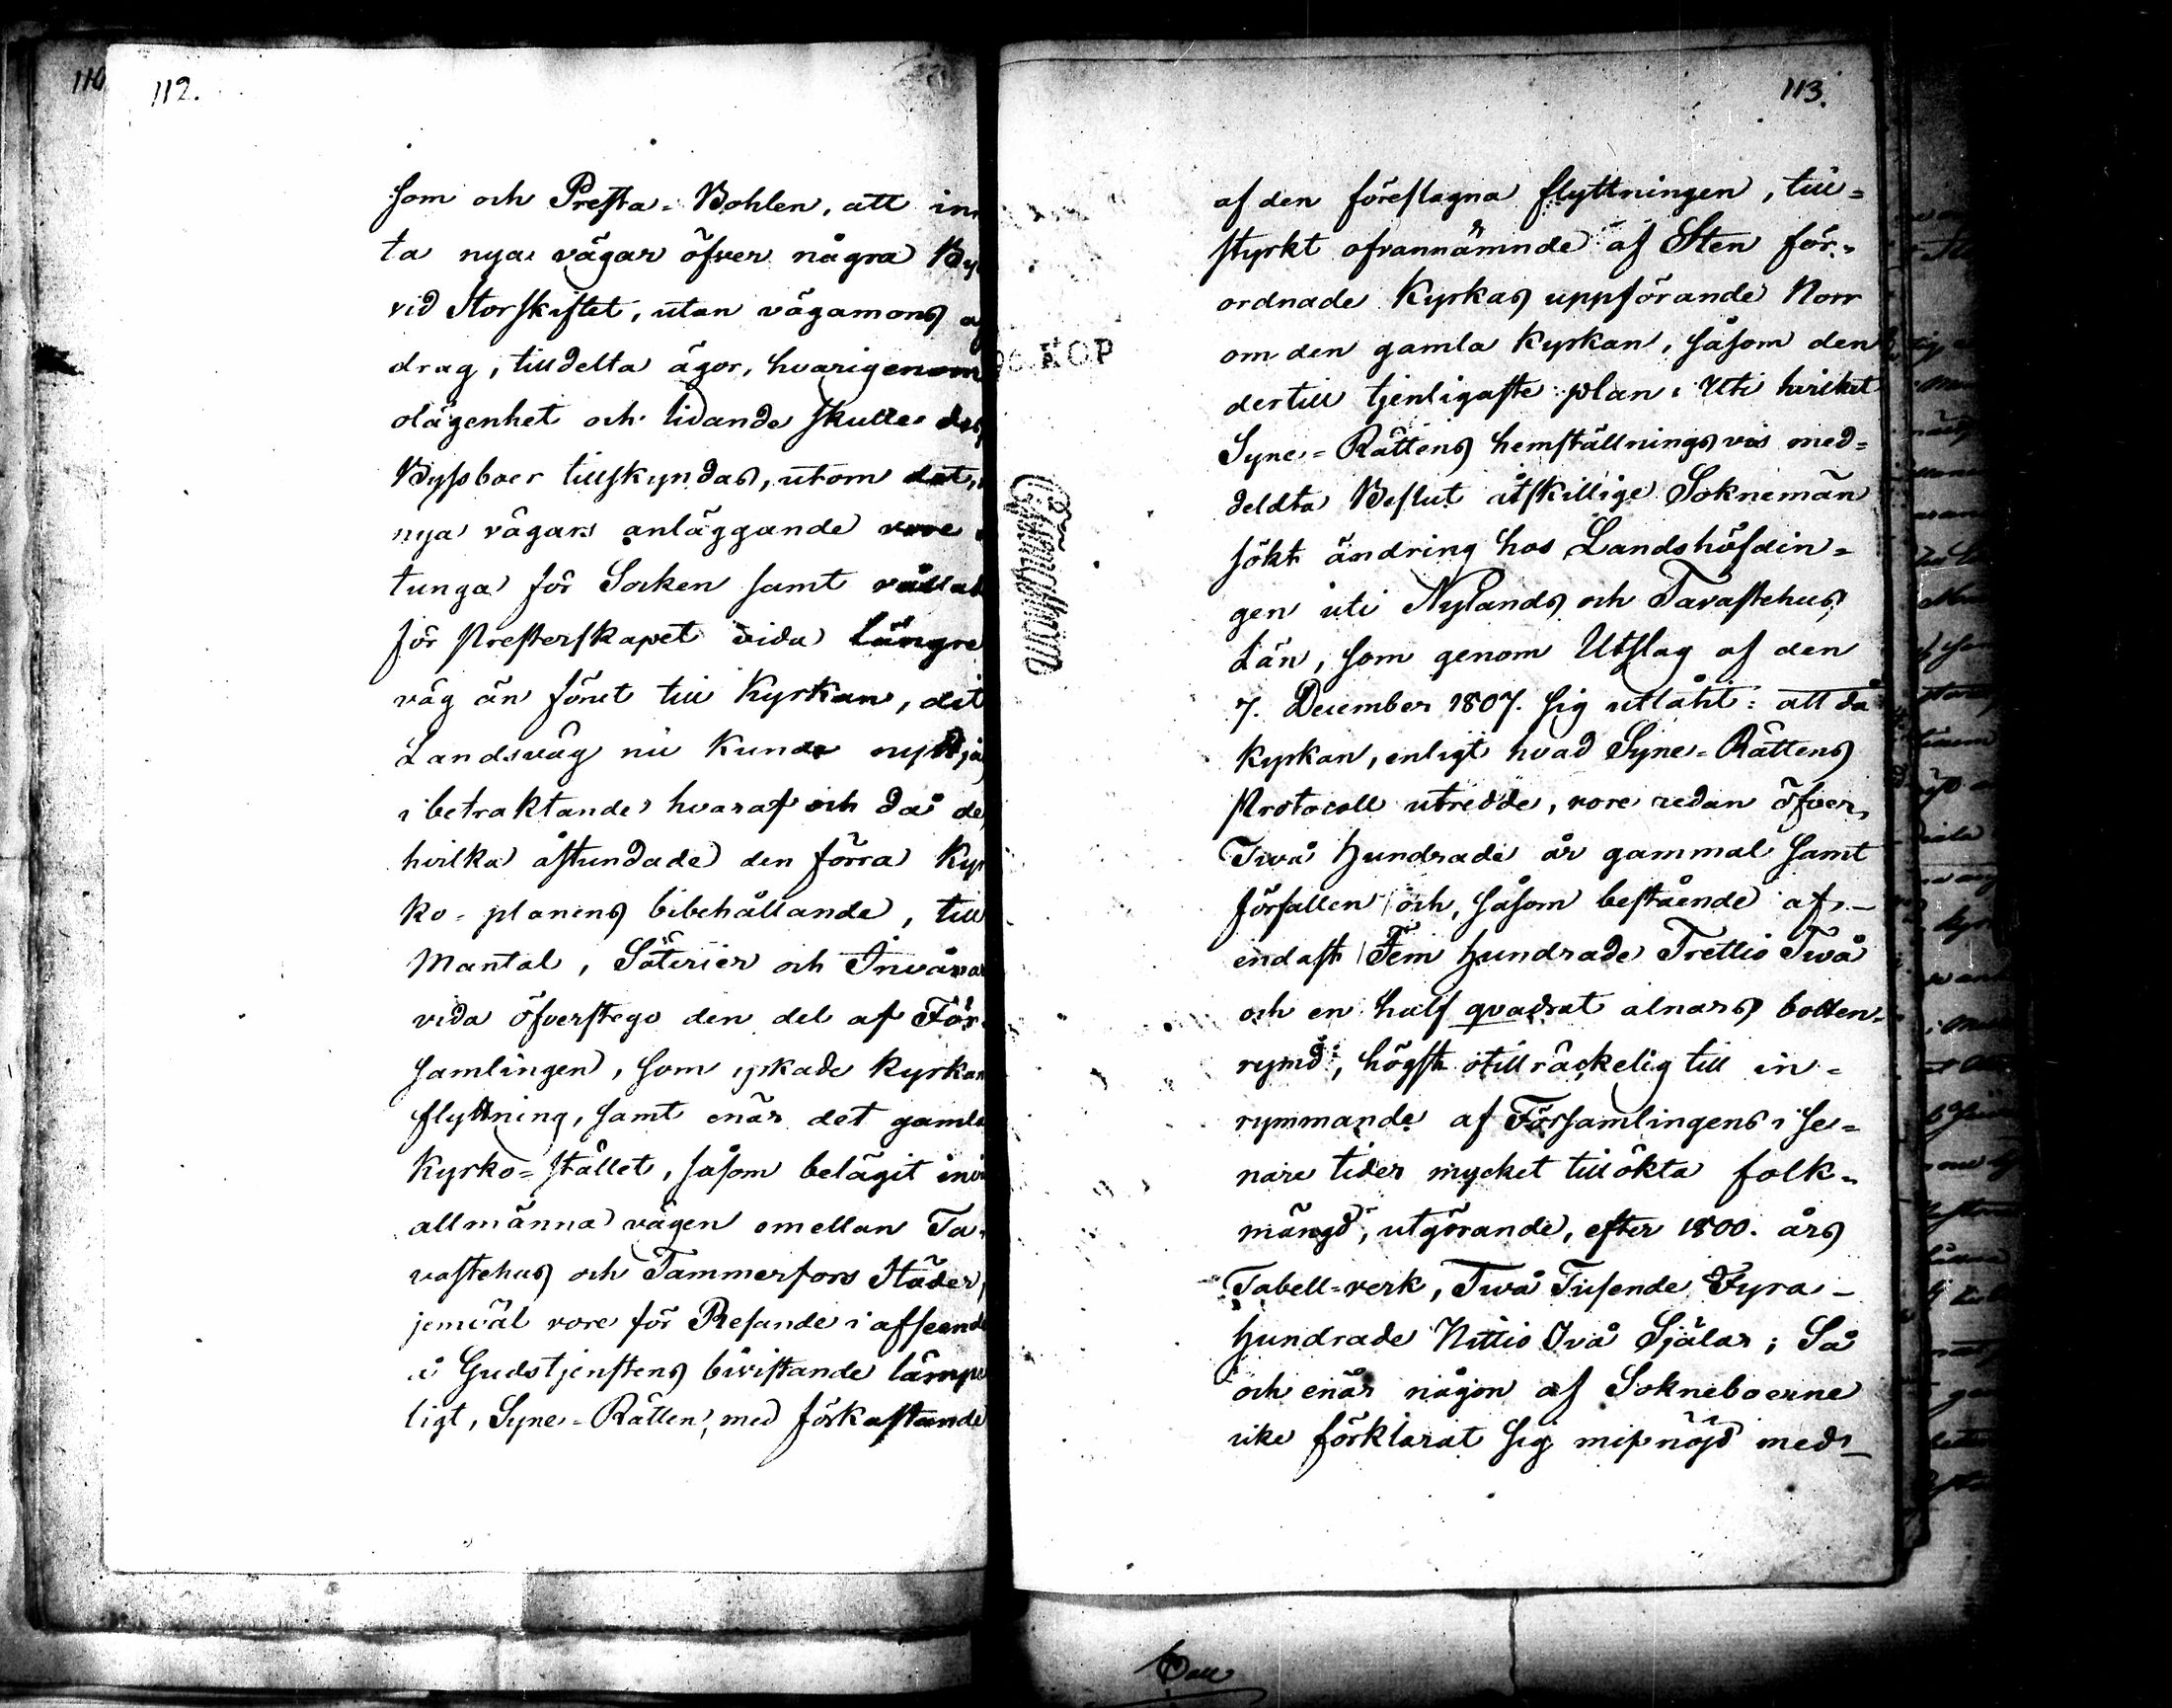 110
112.
som och Presta-Bohlen, att in
ta nya vägar öfver några By
vid Storskiftet, utan vägamons a
drag, tilldelta ägor, hvarigenom
olägenhet och lidande skulle des
Byssboer tillskyndas, utom det,
nya vägars anläggande vore
tunga för Socken samt vålla
för Presterskapet vida längre
väg än förut till Kyrkan, dit
Landsväg nu kunde nyttja
i betraktande hvaraf och då de
hvilka åstundade den förra Kyr
ko-planens bibehållande, till
Mantal, Säterier och Invåna
vida öfverstego den del af För-
samlingen, som yrkade kyrkan
flyttning, samt enär det gamla
Kyrko-stället, såsom belägit in
allmänna vägen emellan Ta-
vastehus och Tammerfors Städer,
jemväl vore för Resande i afseende
å Gudstjenstens bivistande lämpe
ligt, Syne-Rätten, med förkastande
113.
af den föreslagna flyttningen, till-
styrkt ofvannämnde af Sten för-
ordnade Kyrkas uppförande Norr
om den gamla Kyrkan, såsom den
dertill tjenligaste plan: Uti hvilket
Syne-Rättens hemställningsvis med-
deldta Beslut åtskillige Soknemän
sökt ändring hos Landshöfdin-
gen uti Nylands och Tavastehus
Län, som genom Utslag af den
7. December 1807. sig utlåtit: att då
kyrkan, enligt hvad Syne-Rättens
Protocoll utredde, vore redan öfver
Två Hundrade år gammal samt
förfallen och, såsom bestående af
endast Fem Hundrade Trettio Två
och en half qvadrat alnars botten-
rymd, högst otillräckelig till in-
rymmande af Församlingens i se-
nare tider mycket tillökta folk-
mängd, utgörande, efter 1800. års
Tabell-verk, Två Tusende Fyra
Hundrade Nittio Två Själar; Så
och enär någon af Sokneboerne
icke förklarat sig missnöjd med
KOP